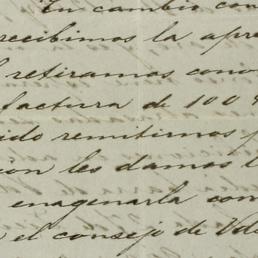 En cambio con
recibimos la apre
retiramos cono
factura de 100
ido remitirnos p
ion les damos l
enagenarla con
el consejo de Vds